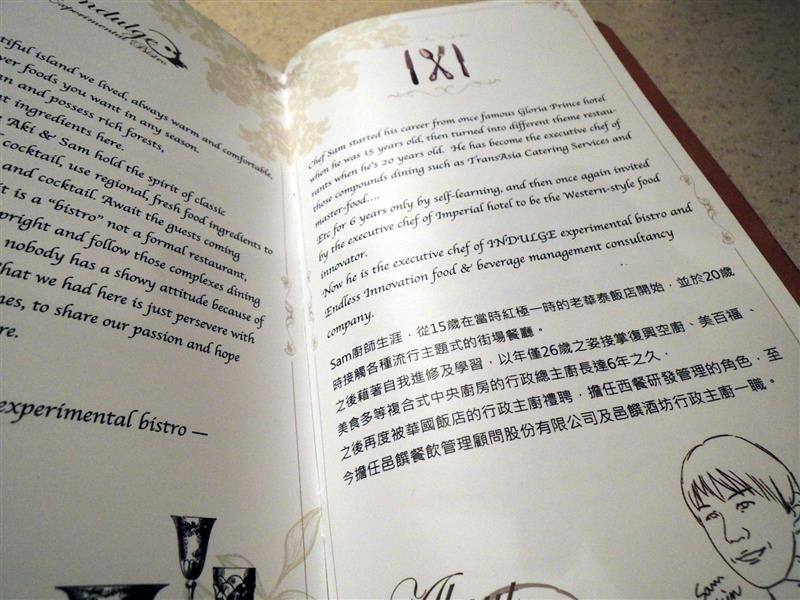 Indulge
Experimental Bistro
island we lived, always warm and comfortable,
foods you want in any season.
and possess rich forests,
ingredients here.
Aki & Sam hold the spirit of classic
cocktail, use regional, fresh food ingredients to
and cocktail. Await the guests coming
it is a "bistro" not a formal restaurant,
and follow those complexes dining
nobody has a showy attitude because of
What we had here is just persevere with
to share our passion and hope
experimental bistro —
Chef Sam started his career from once famous Gloria Prince hotel
when he was 15 years old, then turned into different theme restau-
rants when he's 20 years old. He has become the executive chef of
those compounds dining such as TransAsia Catering Services and
master-food....
Etc for 6 years only by self-learning, and then once again invited
by the executive chef of Imperial hotel to be the Western-style food
innovator.
Now he is the executive chef of INDULGE experimental bistro and
Endless Innovation food & beverage management consultancy
company.
Sam廚師生涯，從15歲在當時紅極一時的老華泰飯店開始，並於20歲
時接觸各種流行主題式的街場餐廳。
之後藉著自我進修及學習，以年僅26歲之姿接掌復興空廚、美百福、
美食多等複合式中央廚房的行政總主廚長達6年之久，
之後再度被華國飯店的行政主廚禮聘，擔任西餐研發管理的角色，至
今擔任邑饌餐飲管理顧問股份有限公司及邑饌酒坊行政主廚一職。
Sam
About